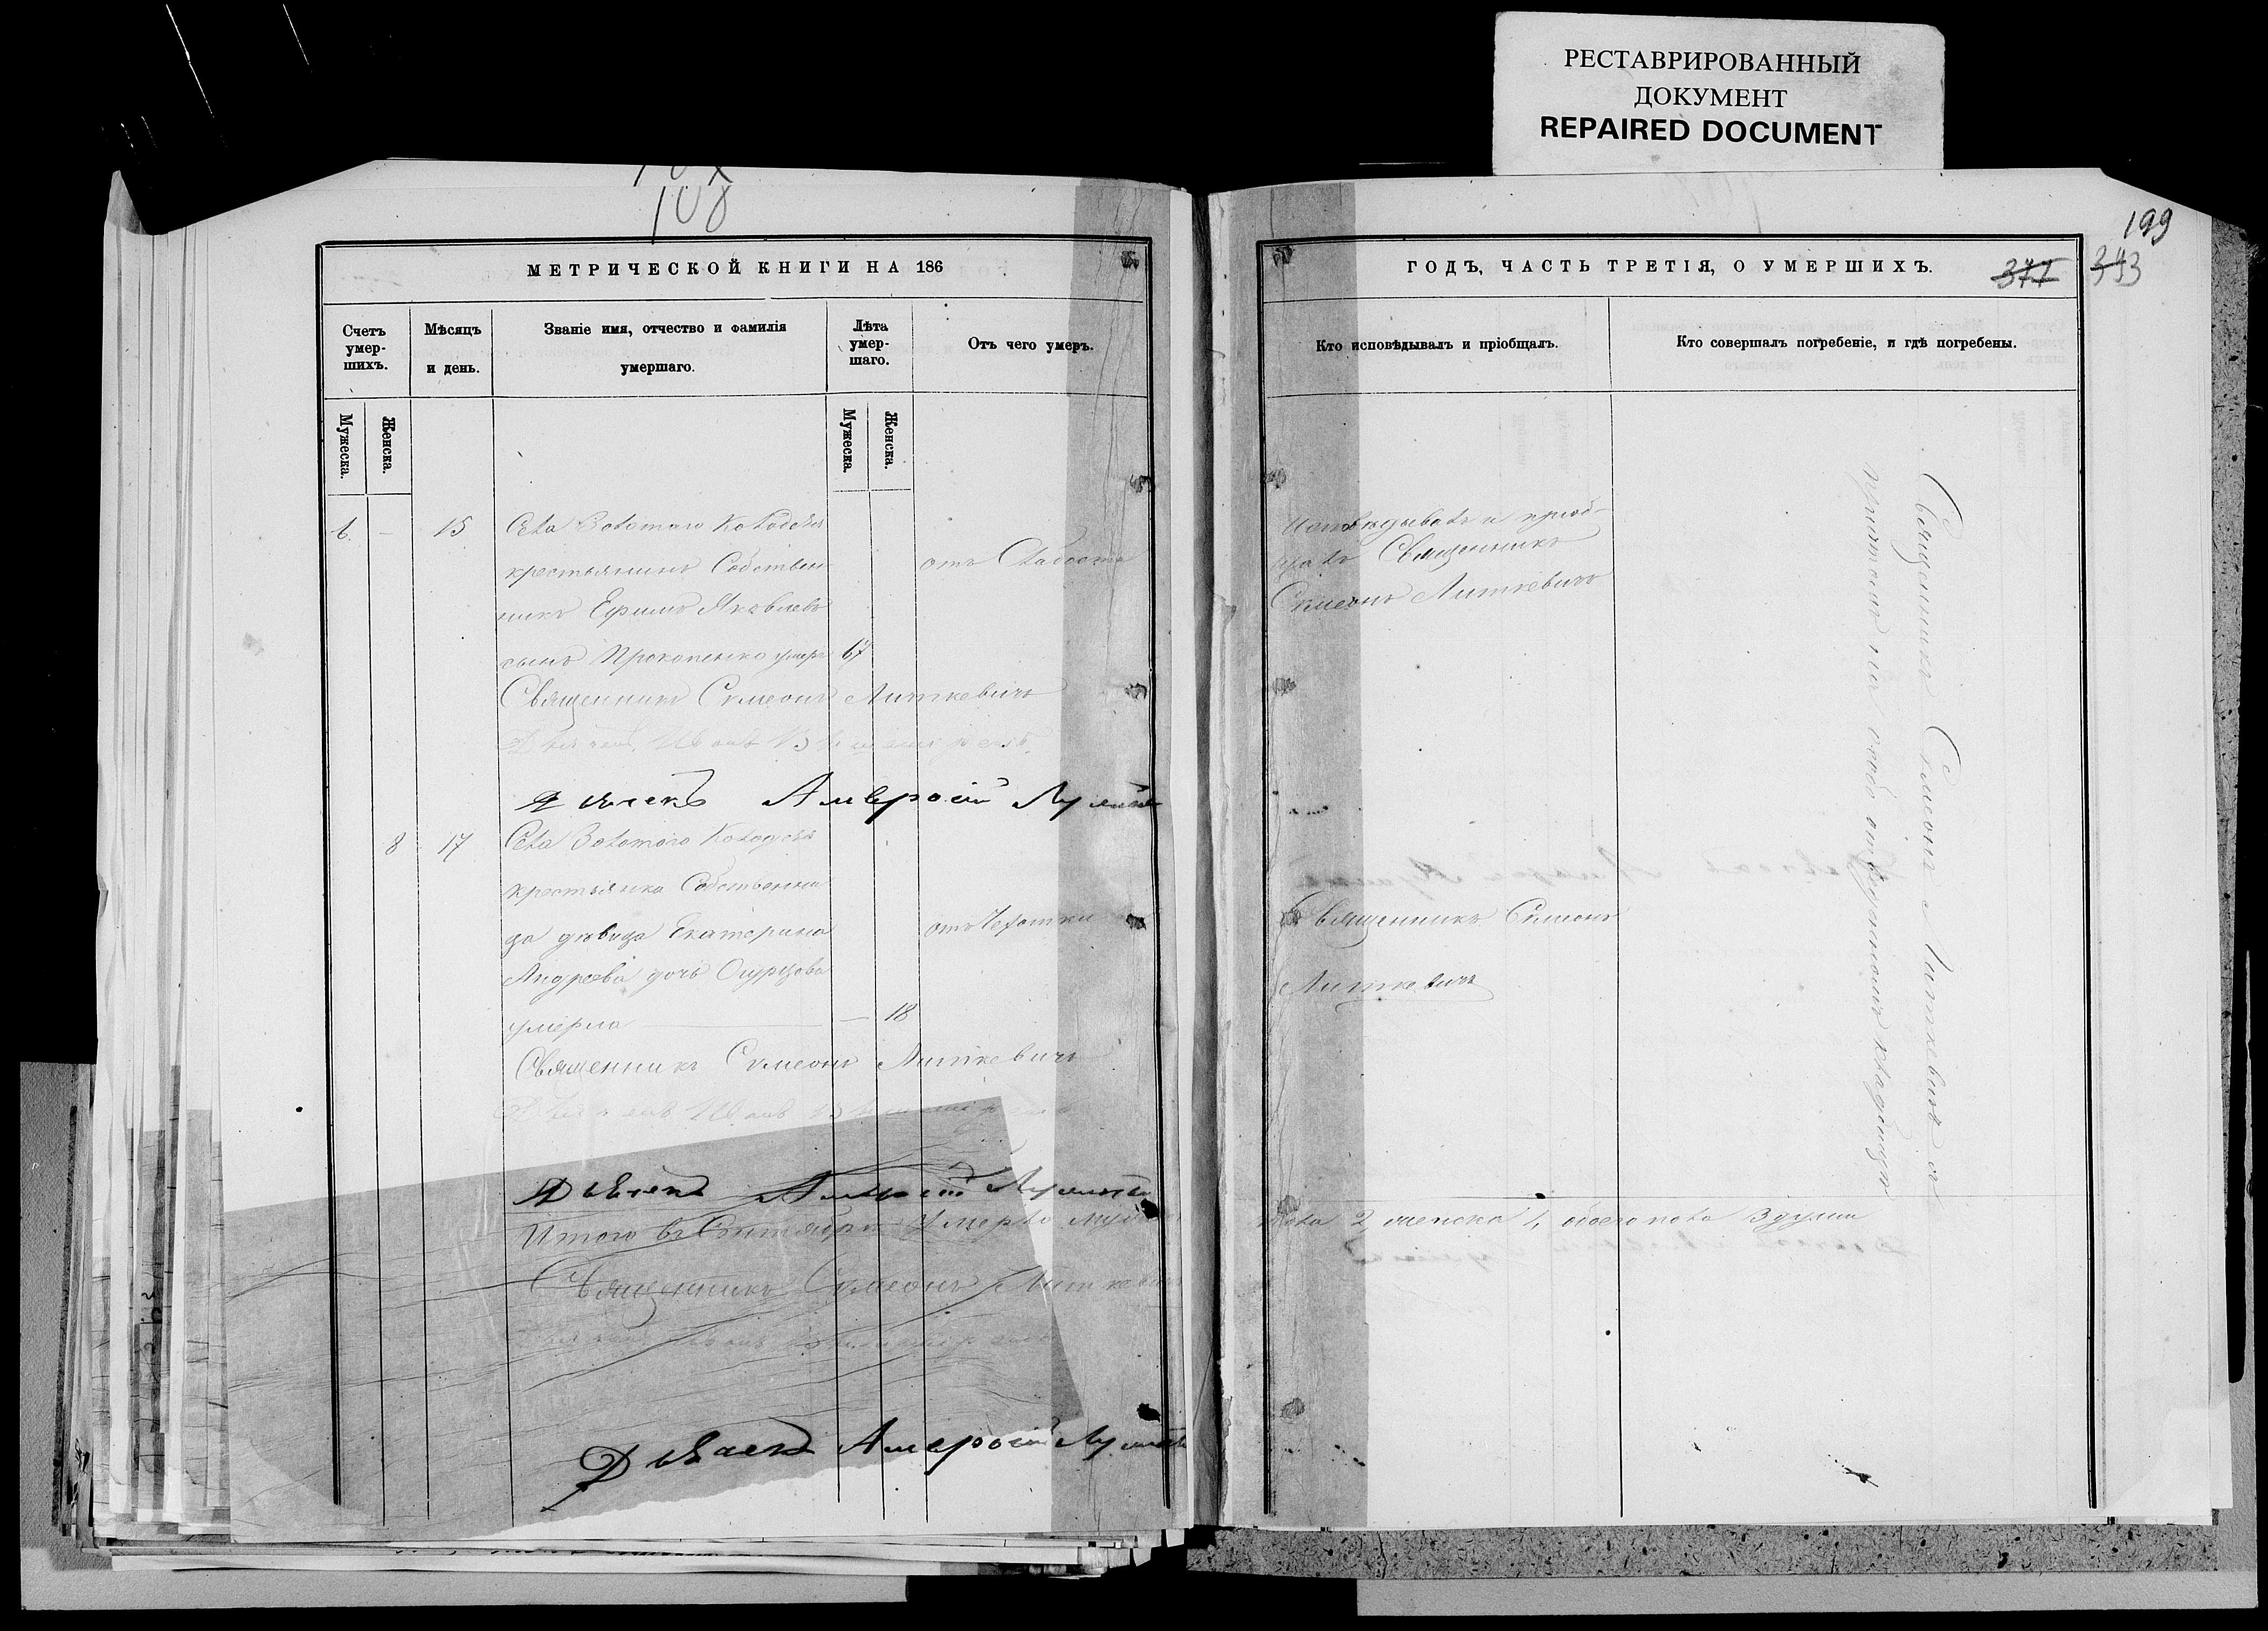 РЕСТАВРИРОВАННЫЙ
ДОКУМЕНТ
REPAIRED DOCUMENT
108
199
МЕТРИЧЕСКОЙ КНИГИ НА 186
ГОДЪ, ЧАСТЬ ТРЕТІЯ, О УМЕРШИХЪ.
377 343
Счетъ умер-шихъ.
Мѣсяцъ и день.
Званіе имя, отчество и фамилія умершаго.
Лѣта умер-шаго.
Отъ чего умеръ.
Кто исповѣдывалъ и пріобщалъ.
Кто совершалъ погребеніе, и гдѣ погребены.
Мужеска.
Женска.
Мужеска.
Женска.
6. - 15 Села Золотого Колодезя
крестьянинъ Собствен
никъ Ефимъ Яковлевъ
сынъ Прокопенко умеръ 67
отъ Слабости
Исповѣдывалъ и пріоб-
щалъ Священникъ
Симеонъ Литкевичъ
Священникъ Симеонъ Литкевичъ
Дьячекъ Амвросій
8 17 Села Золотого Колодезя
крестьянка Собственни
ца дѣвица Екатерина
Андреева дочь Огурцова
умерла — 18
отъ Чехотки
Священникъ Симеонъ
Литкевичъ
Священникъ Симеонъ Литкевичъ
Дьячекъ Амвросій
Священникъ Симеонъ Литкевичъ съ
причтомъ на отведенномъ кладбищѣ
Итого въ Сентябрѣ Умерло муж
пола 2, женска 1, обоего пола 3 души
Священникъ Симеонъ Литкевичъ
Дьячекъ Амвросій